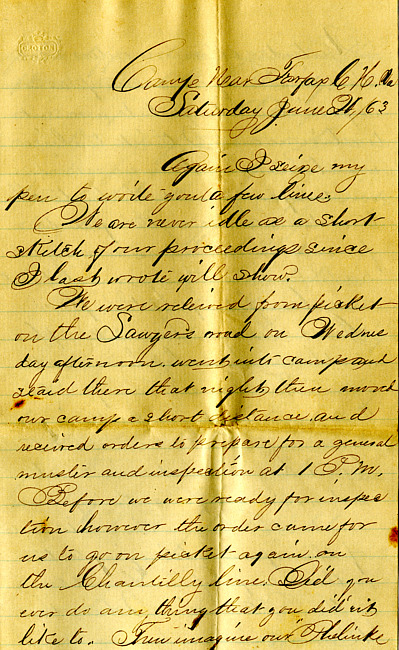 Camp Near Fairfax C. H. Va
Saturday June 21/63
Again I seize my
pen to write you a few lines.
We are never idle as a short
sketch of our proceedings since
I last wrote will show.
We were relieved from picket
on the Sawyers road on Wednes
day afternoon. went into camp and
staid there that night, then moved
our camp a short distance. and
received orders to prepare for a general
muster and inspection at 1 P.M.
Before we were ready for inspec
tion however the order came for
us to go on picket again. on
the Chantilly line. Did you
ever do any thing that you did'nt
like to. Then imagine our